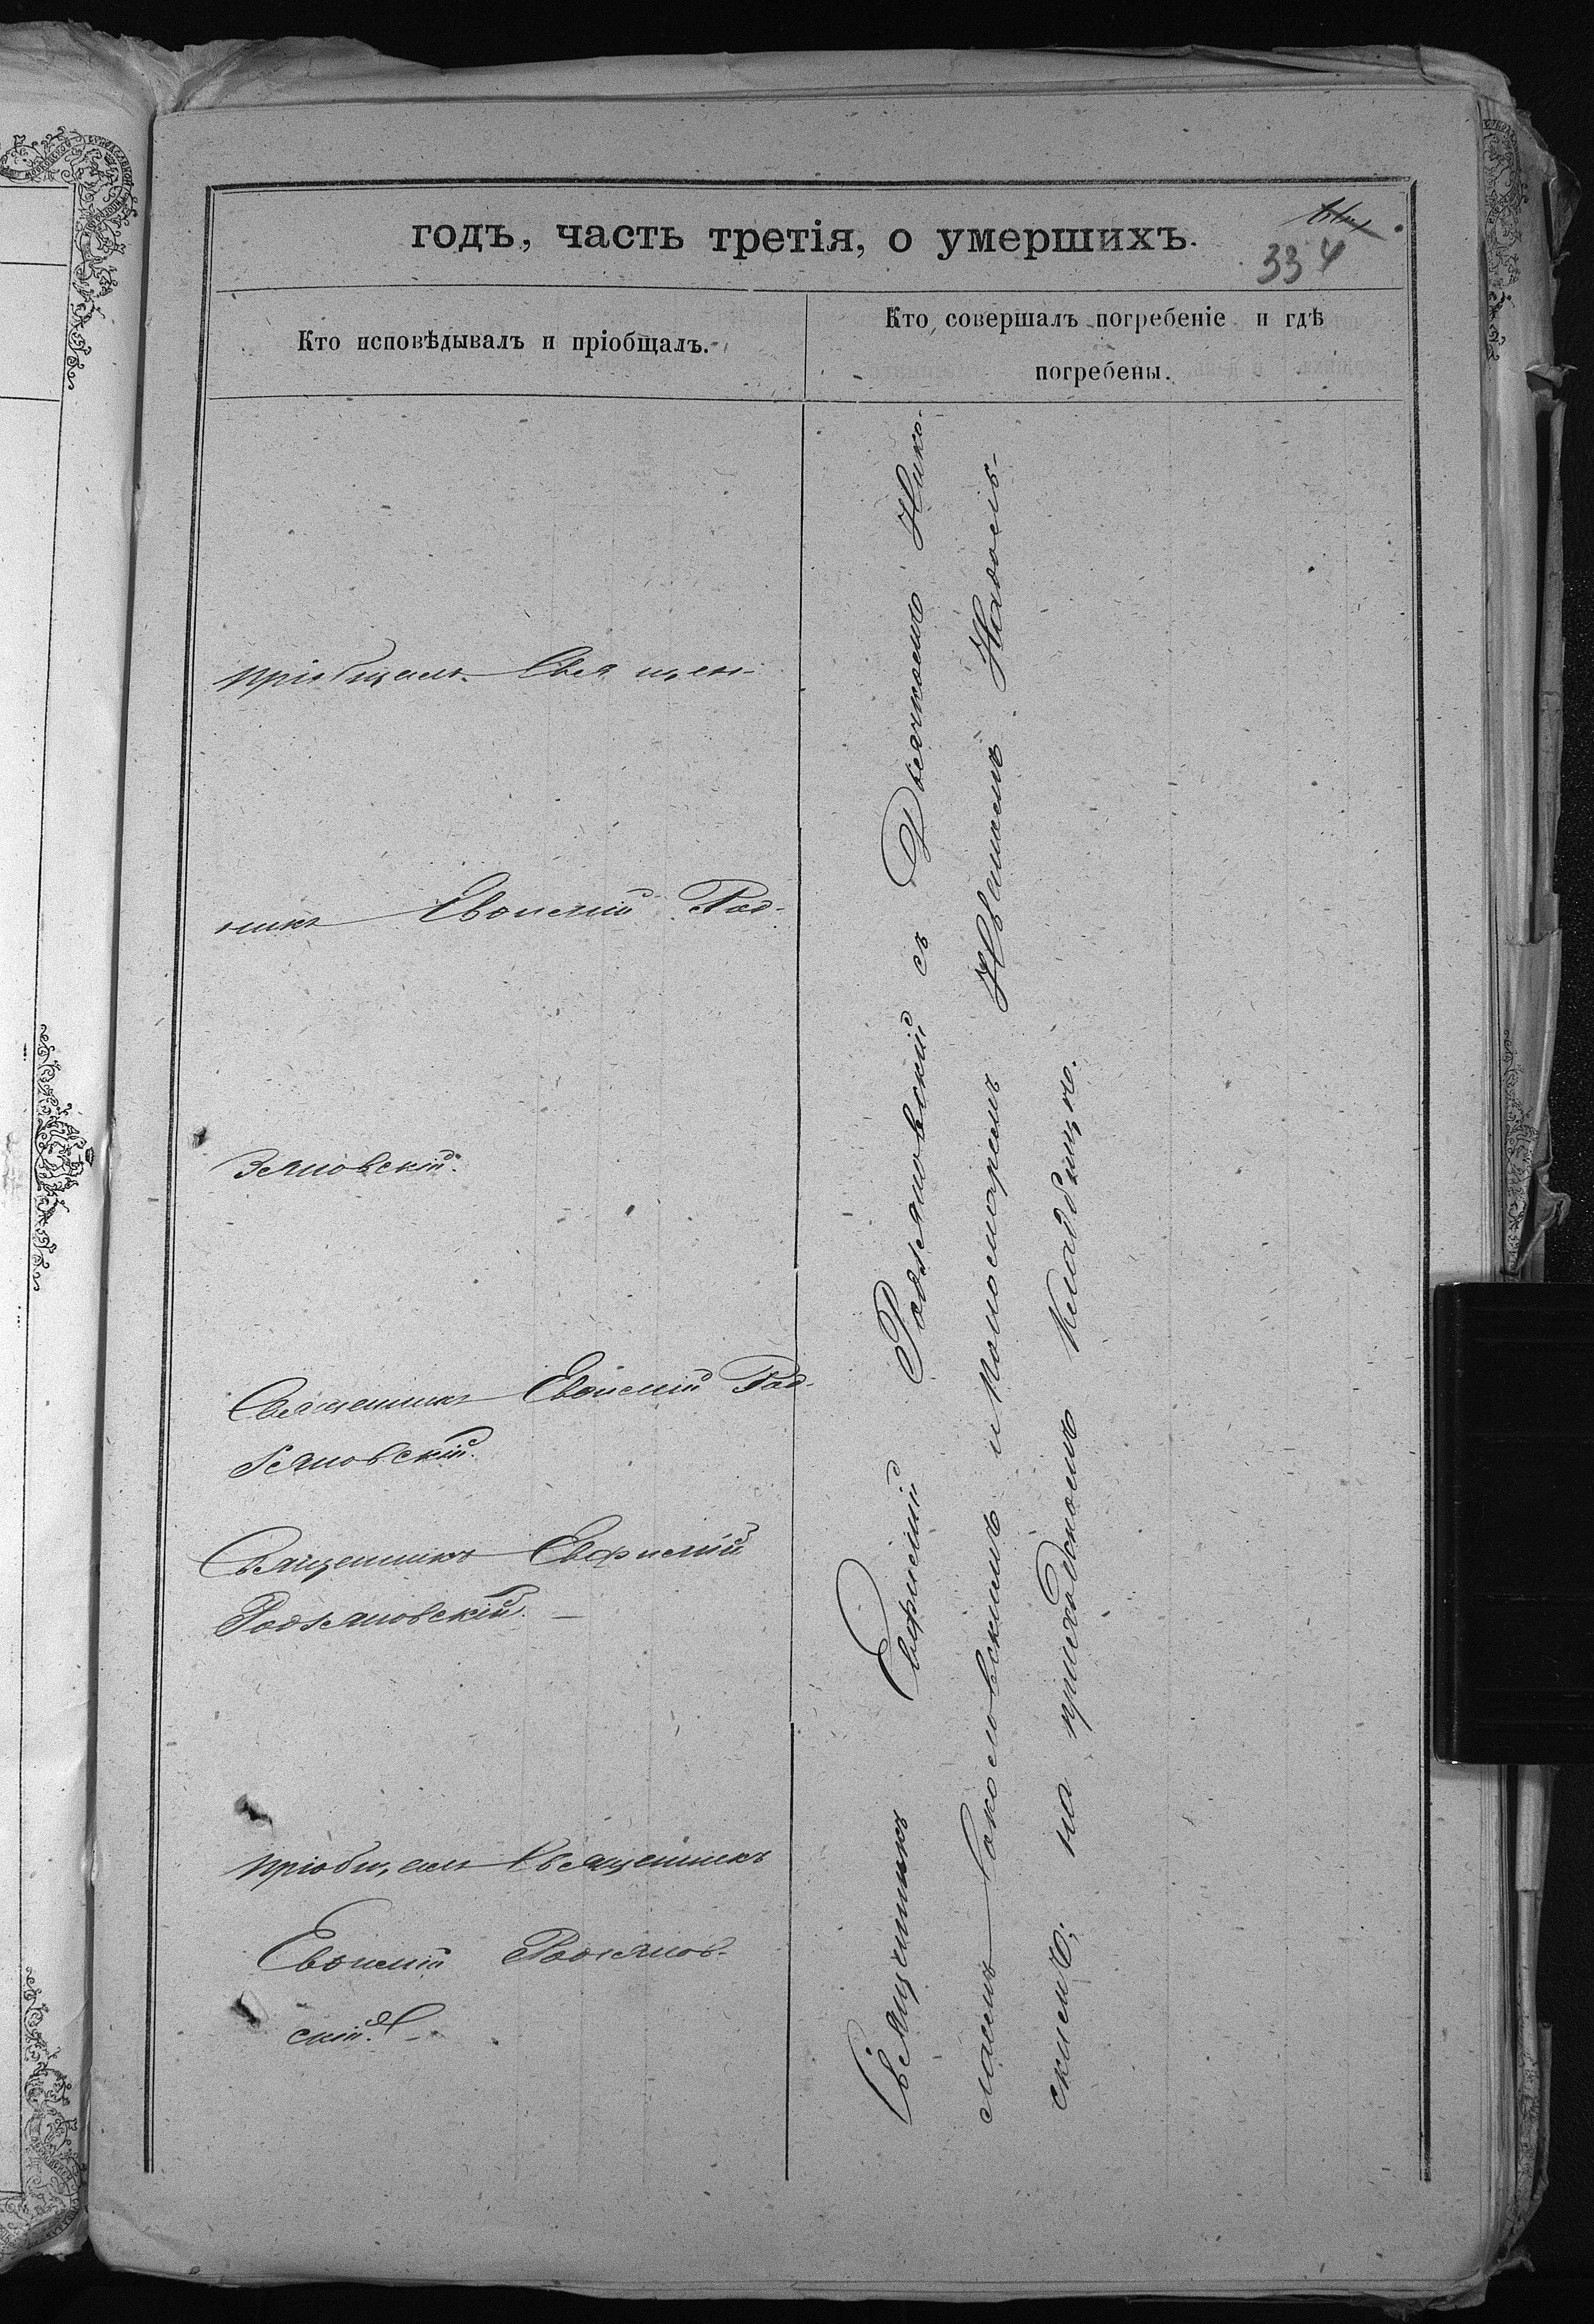 годъ, часть третія, о умершихъ.
334
Кто исповѣдывалъ и пріобщалъ.
Кто совершалъ погребеніе и гдѣ
погребены.
пріобщалъ Священ-
никъ Евфимій Род-
зяновскій.
Священникъ Евфимій Род-
зяновскій.
Священникъ Евфимій
Родзяновскій.
пріобщалъ Священникъ
Евфимій Родзянов-
скій.
Священникъ Евфимій Родзяновскій съ Дьячкомъ Нико-
лаемъ Соколовскимъ и Пономаремъ Иваномъ
скимъ, на приходскомъ кладбищѣ.